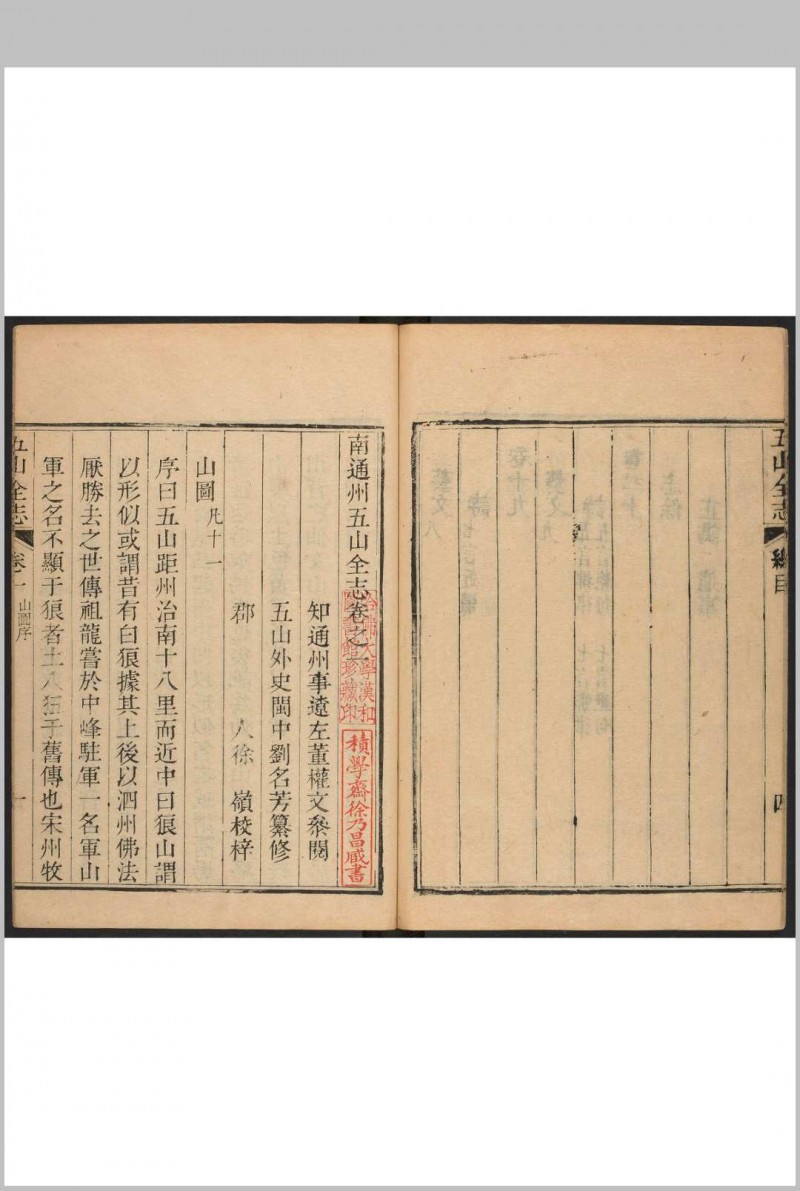 五山全志
總目
四
南通州五山全志卷之一
哈佛大學漢和圖書館珍藏印
積學齋徐乃昌藏書
知通州事遼左董權文參閱
五山外史閩中劉名芳纂修
郡人徐嶺校梓
山圖凡十一
序曰五山距州治南十八里而近中曰狼山謂
以形似或謂昔有白狼據其上後以泗州佛法
厭勝去之世傳祖龍嘗於中峰駐軍一名軍山
軍之名不顯于狼者土人狃于舊傳也宋州牧
五山全志
卷一
山圖序
一